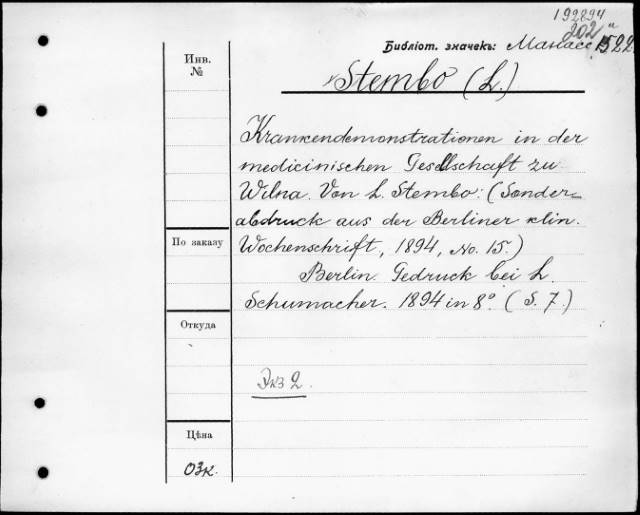 192894
202"
Библіот. значекъ: Манасс. 1522
Инв.
№
Stembo (L.)
Krankendemonstrationen in der
medicinischen Gesellschaft zu
Wilna. Von L. Stembo: (Sonder=
abdruck aus der Berliner klin.
Wochenschrift, 1894, No. 15.)
Berlin. Gedruck bei L.
Schumacher. 1894 in 8° (S. 7.)
По заказу
Откуда
Экз 2.
Цѣна
03к.